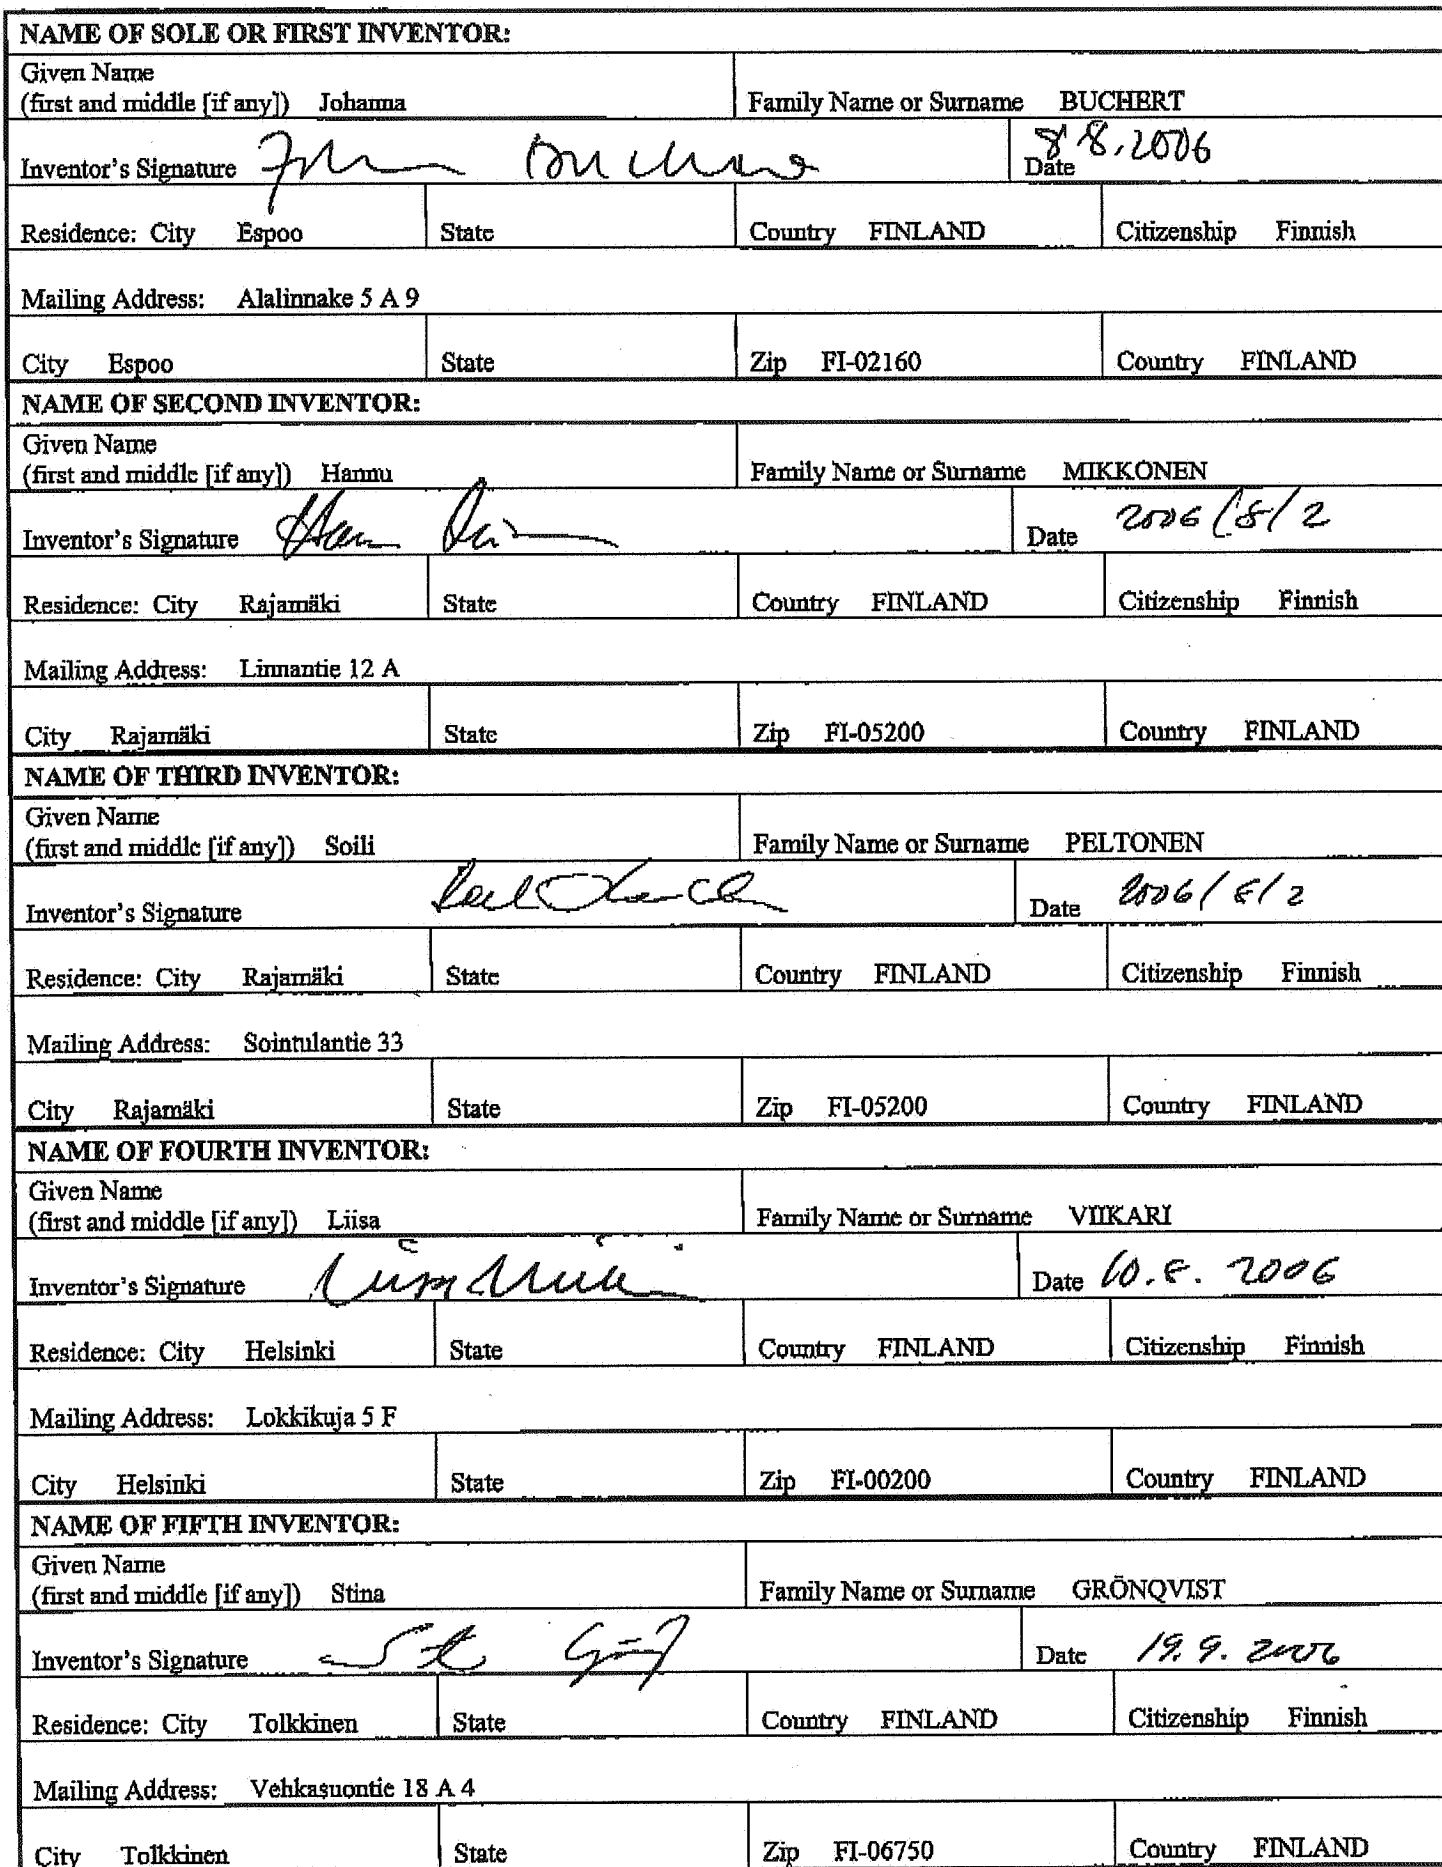 NAME OF SOLE OR FIRST INVENTOR:
Given Name
(first and middle [if any]) Johanna Family Name or Surname BUCHERT
Inventor's Signature Date 8.8.2006
Residence: City Espoo State Country FINLAND Citizenship Finnish
Mailing Address: Alalinnake 5 A 9
City Espoo State Zip FI-02160 Country FINLAND
NAME OF SECOND INVENTOR:
Given Name
(first and middle [if any]) Hannu Family Name or Surname MIKKONEN
Inventor's Signature Date 2006/8/2
Residence: City Rajamäki State Country FINLAND Citizenship Finnish
Mailing Address: Linnantie 12 A
City Rajamäki State Zip FI-05200 Country FINLAND
NAME OF THIRD INVENTOR:
Given Name
(first and middle [if any]) Soili Family Name or Surname PELTONEN
Inventor's Signature Date 2006/8/2
Residence: City Rajamäki State Country FINLAND Citizenship Finnish
Mailing Address: Sointulantie 33
City Rajamäki State Zip FI-05200 Country FINLAND
NAME OF FOURTH INVENTOR:
Given Name
(first and middle [if any]) Liisa Family Name or Surname VIIKARI
Inventor's Signature Date 10.8. 2006
Residence: City Helsinki State Country FINLAND Citizenship Finnish
Mailing Address: Lokkikuja 5 F
City Helsinki State Zip FI-00200 Country FINLAND
NAME OF FIFTH INVENTOR:
Given Name
(first and middle [if any]) Stina Family Name or Surname GRÖNQVIST
Inventor's Signature Date 19.9.2006
Residence: City Tolkkinen State Country FINLAND Citizenship Finnish
Mailing Address: Vehkasuontie 18 A 4
City Tolkkinen State Zip FI-06750 Country FINLAND